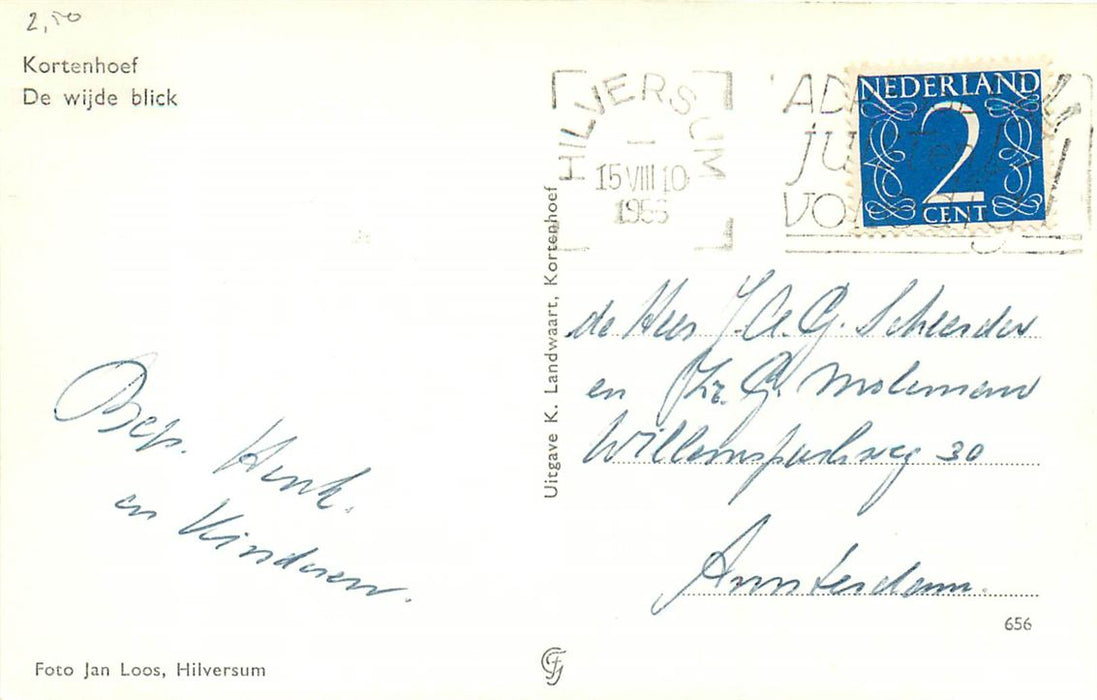 2,50
Kortenhoef
De wijde blick
HILVERSUM
15 VIII 10
1956
NEDERLAND
2
CENT
Uitgave K. Landwaart, Kortenhoef
de Heer J.A.G. Scheerder
en G. Moleman
Willemsparkweg 30
Amsterdam.
Bep. Henk.
en Kinderen.
656
Foto Jan Loos, Hilversum